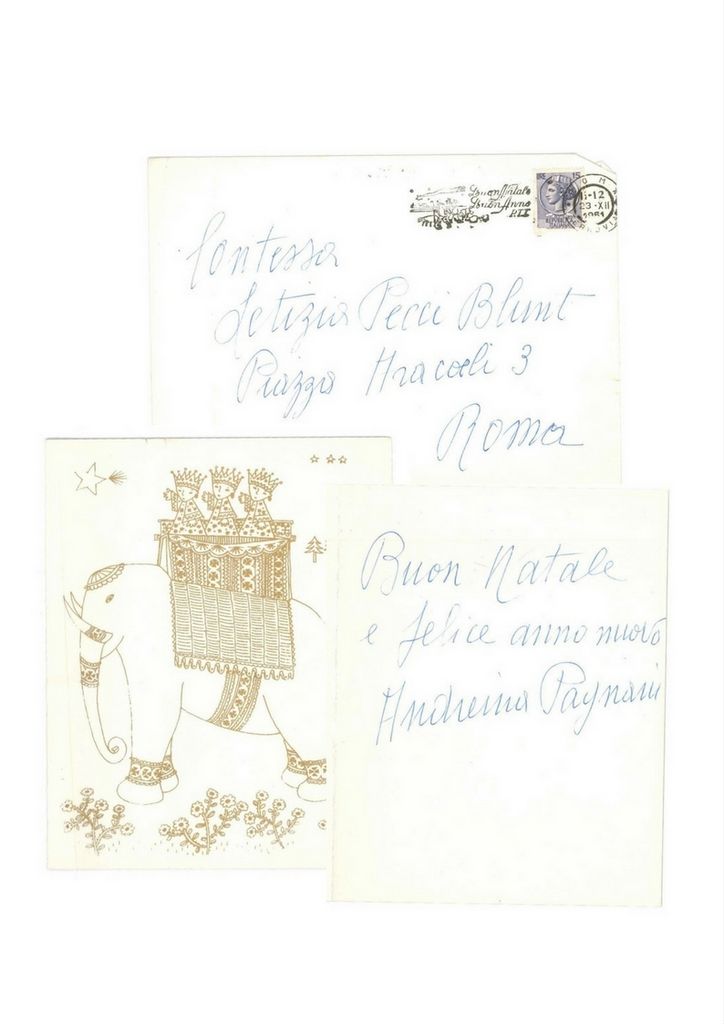 Buon Natale
Buon Anno
P.TT
ROMA
15-12
23·XII
1961
Contessa
Letizia Pecci Blunt
Piazza Aracoeli 3
Roma
Buon Natale
e felice anno nuovo
Andreina Pagnani